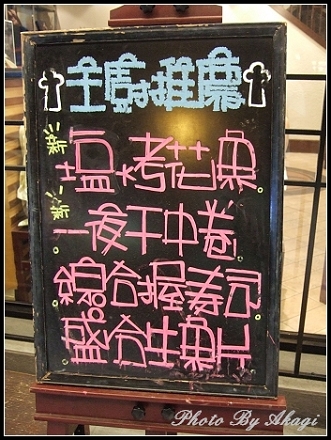 主廚推薦
塩烤花魚
一夜干中卷
綜合握寿司
盛合生魚片
Photo By Akagi